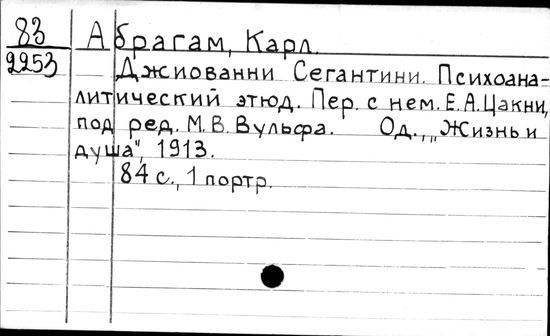 83 Абрагам, Карл.
2253 Джиованни Сегантини. Психоана-
литический этюд. Пер. с нем. Е.А.Цакни,
под ред. М.В.Вульфа. Од., „Жизнь и
душа", 1913.
84 с., 1 портр.